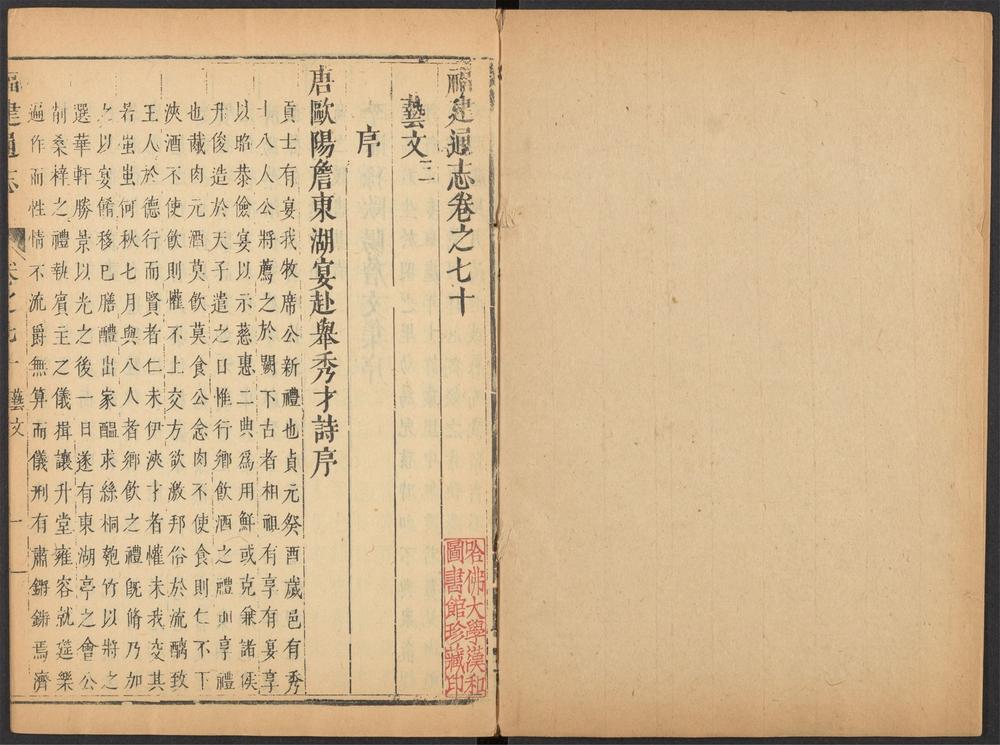 福建通志卷之七十
藝文三
序
唐歐陽詹東湖宴赴舉秀才詩序
貢士有宴我牧席公新禮也貞元癸酉歲邑有秀
士八人公將薦之於闕下古者相祖有享有宴享
以昭恭儉宴以示慈惠二典為用鮮或克兼諸侯
升俊造於天子遣之日惟行鄉飲酒之禮則享禮
也胾肉元酒莫飲莫食公念肉不使食則仁不下
浹酒不使飲則懽不上交方欲激邦俗於流醨致
王人於德行而賢者仁未伊浹才者懽未我交其
若蚩蚩何秋七月與八人者鄉飲之禮既脩乃加
之以宴餚移已膳醴出家醞求絲桐匏竹以將之
選華軒勝景以光之後一日遂有東湖亭之會公
削桑梓之禮執賓主之儀揖讓升堂雍容就筵樂
遍作而性情不流爵無算而儀刑有肅鏘鏘焉濟
福建通志
卷之七十
藝文
一
哈佛大學漢和
圖書館珍藏印